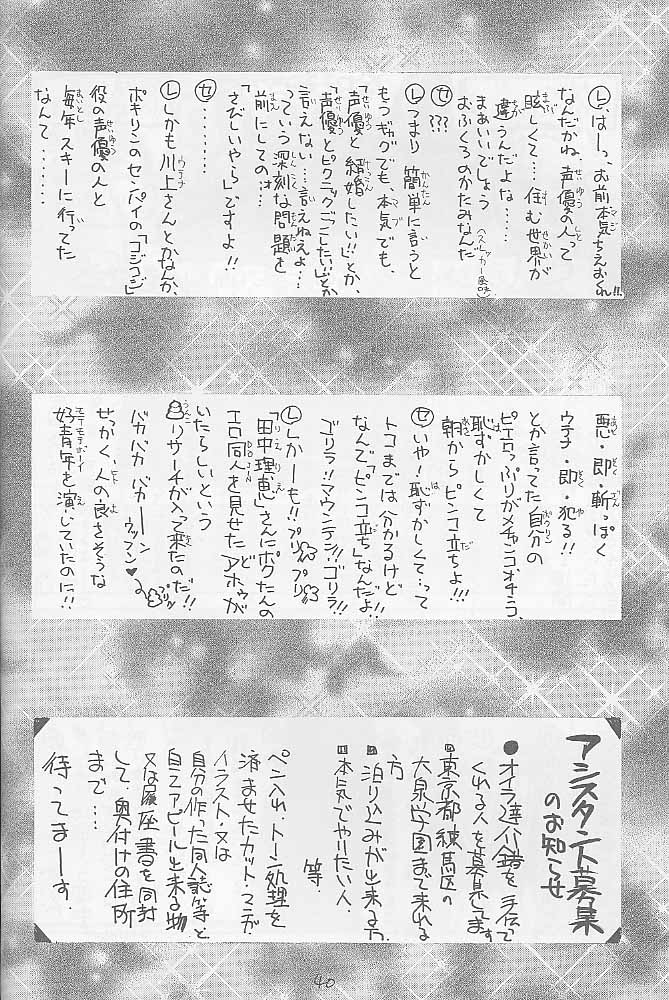 Ⓛはーっ、お前本気ちえおくれ!!
なんだかね、声優の人って
眩しくて…住む世界が
違うんだよな……
まあいいでしょう
おふくろのかたみなんだ
Ⓢ???
Ⓛつまり簡単に言うと
もつギグでも、本気でも、
「声優と結婚したい!!」とか、
「声優とピクニックごーしたい!!」とか
言えない…言えねえよ…
っていう深刻な問題を
前にしてのォ…
「さびしいやら」ですよ!!
Ⓢ……
Ⓛしかも川上さんとかなんか、
ポキリンのセンパイの「コジコジ」
役の声優の人と
毎年スキーに行ってた
なんて……
悪・即・斬っぽく
ウテナ・即・犯る!!
とか言ってた自分の
ピエロっぷりがメチャンコオチャ、
恥ずかしくて
朝からピンコ立ちよ!!!
Ⓢいや!恥ずかしくて…って
トコまでは分かるけど
なんで「ピンコ立ち」なんだよ!!
ゴリラ!!マウンテン!!ゴリラ!!
Ⓛしかーも!!プリプリ
「田中理恵」さんにポクたんの
エロ同人を見せたアホゥが
いたらしいという
リサーチが入って来たのだ!!
バカバカバカーン
ウッフン♥
せっかく、人の良さそうな
好青年を演じていたのに!!
アシスタント募集
のお知らせ
●オイラ達の錯を手伝て
くれる人を募集してます
■東京都練馬区の
大泉学園まで来れる
方
■泊り込みが出来る方
■本気でやりたい人、
等
ペン入れ、トーン処理を
済ませたカット・マンガ
イラスト・又は
自分の作った同人誌等と
自己アピール出来る物
又は履歴書を同封
して、奥付けの住所
まで…
待ってまーす。
40